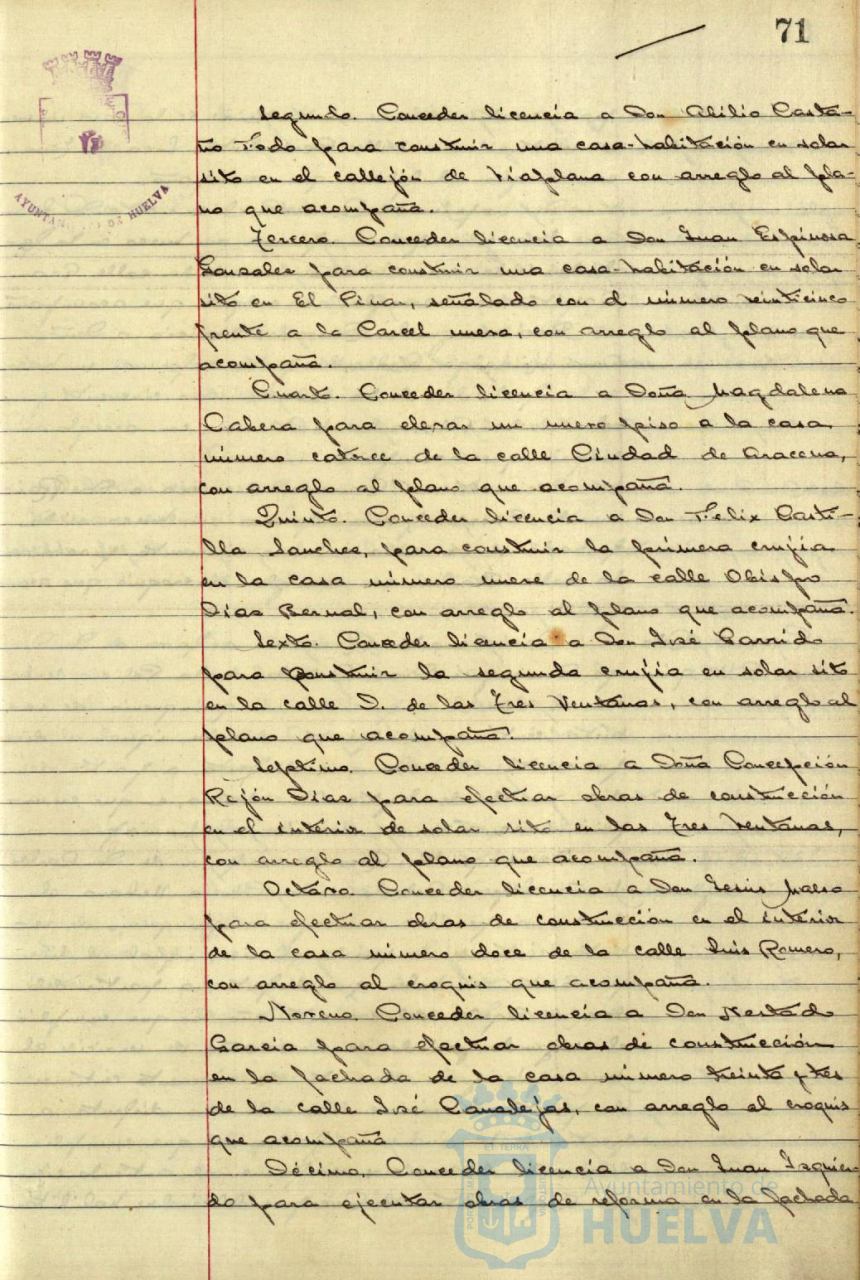 71
AYUNTAMIENTO DE HUELVA
Segundo. Conceder licencia a Don Abilio Casta-
ño Todo para construir una casa-habitación en solar
sito en el callejón de Viaplana con arreglo al pla-
no que acompaña.
Tercero. Conceder licencia a Don Juan Espinosa
Gonzalez para construir una casa-habitación en solar
sito en El Pinar, señalado con el número veinticinco
frente a la Carcel nueva, con arreglo al plano que
acompaña.
Cuarto. Conceder licencia a Doña Magdalena
Cabera para elevar un nuevo piso a la casa
número catorce de la calle Ciudad de Aracena,
con arreglo al plano que acompaña.
Quinto. Conceder licencia a Don Felix Casti-
lla Sanchez, para construir la primera crujia
en la casa número nueve de la calle Obispo
Diaz Bernal, con arreglo al plano que acompaña.
Sexto. Conceder licencia a Don José Garrido
para construir la segunda crujia en solar sito
en la calle D. de las Tres Ventanas, con arreglo al
plano que acompaña.
Septimo. Conceder licencia a Doña Concepción
Rejón Diaz para efectuar obras de construcción
en el interior de solar sito en las Tres Ventanas,
con arreglo al plano que acompaña.
Octavo. Conceder licencia a Don Jesús
para efectuar obras de construcción en el interior
de la casa número doce de la calle Luis Romero,
con arreglo al croquis que acompaña.
Noveno. Conceder licencia a Don
Garcia para efectuar obras de construcción
en la fachada de la casa número treinta y tres
de la calle José Canalejas, con arreglo al croquis
que acompaña
Décimo. Conceder licencia a Don Juan Izquier-
do para ejecutar obras de reforma en la fachada
Ayuntamiento de
HUELVA